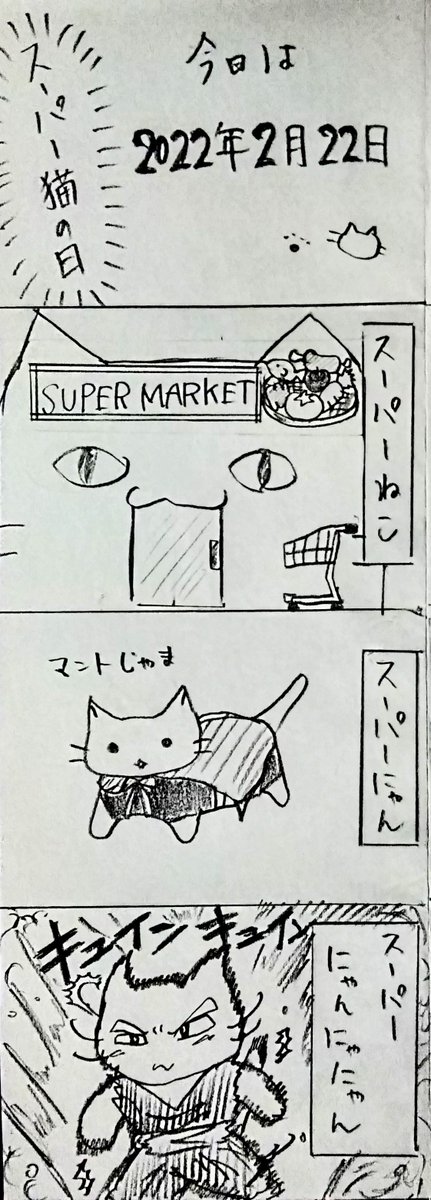 今日は
2022年2月22日
スーパー猫の日
スーパーねこ
SUPER MARKET
スーパーにゃん
マントじゃま
スーパー
にゃんにゃにゃん
キュイン キュイン